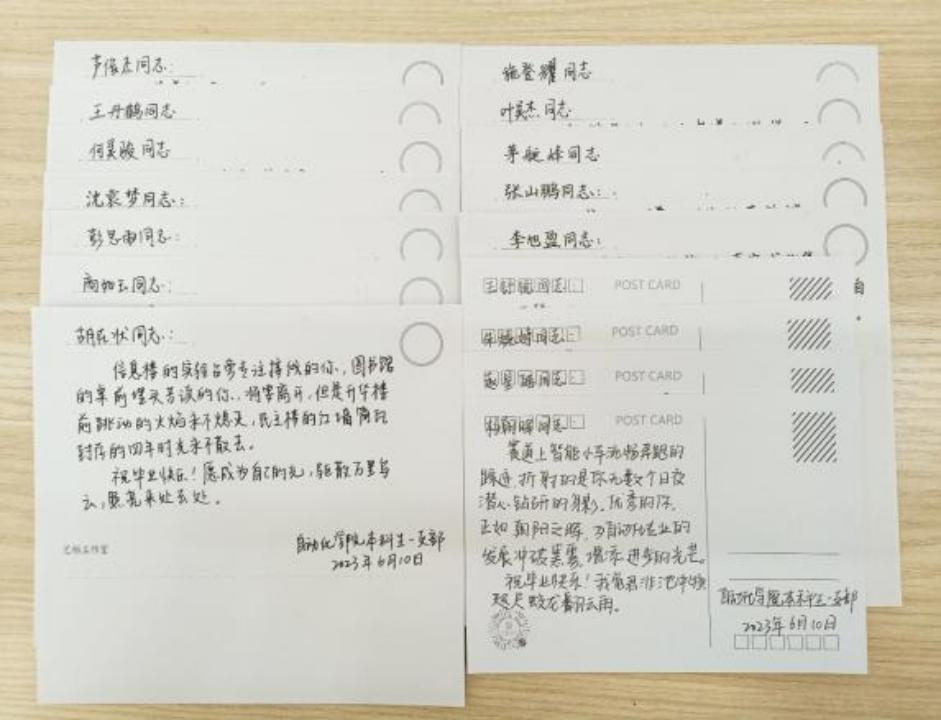 同志：
王丹鹤同志
何昊骏同志
沈袁梦同志：
彭思雨同志：
同志：
同志：
信息楼的实验台旁专注接线的你，图书馆
的桌前埋头苦读的你，将要离开，但是升华楼
前跳动的火焰永不熄灭，民主楼的红墙
封存的四年时光永不散去。
祝毕业快乐！愿成为自己的光，驱散万里乌
云，照亮来处去处。
自动化学院本科生一支部
2023年6月10日
施登耀同志
叶昊杰同志
茅艇烽同志
张山鹏同志：
李旭盈同志：
同志：
POST CARD
同志：
POST CARD
同志：
POST CARD
同志
POST CARD
赛道上智能小车流畅奔跑的
踪迹，折射的是你无数个日夜
潜心钻研的身影。优秀的你，
正如朝阳之晖，为自动化专业的
发展冲破黑雾，增添进步的光芒。
祝毕业快乐！我觉君非池中物，
咫尺蛟龙云雨。
自动化学院本科生一支部
2023年6月10日